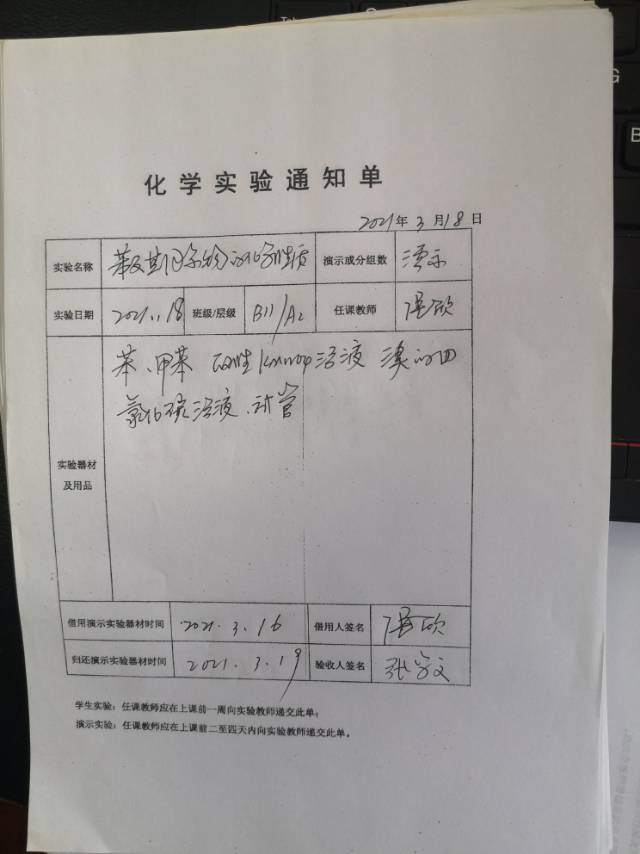 化学实验通知单
2021年3月18日
实验名称 苯及其同系物的化学性质 演示或分组数 演示
实验日期 2021..18 班级/层级 B11/A2 任课教师
实验器材及用品 苯、甲苯 酸性KMnO4溶液 溴的四
氯化碳溶液、试管
借用演示实验器材时间 2021.3.16 借用人签名
归还演示实验器材时间 2021.3.19 验收人签名
学生实验：任课教师应在上课前一周向实验教师递交此单；
演示实验：任课教师应在上课前二至四天内向实验教师递交此单。